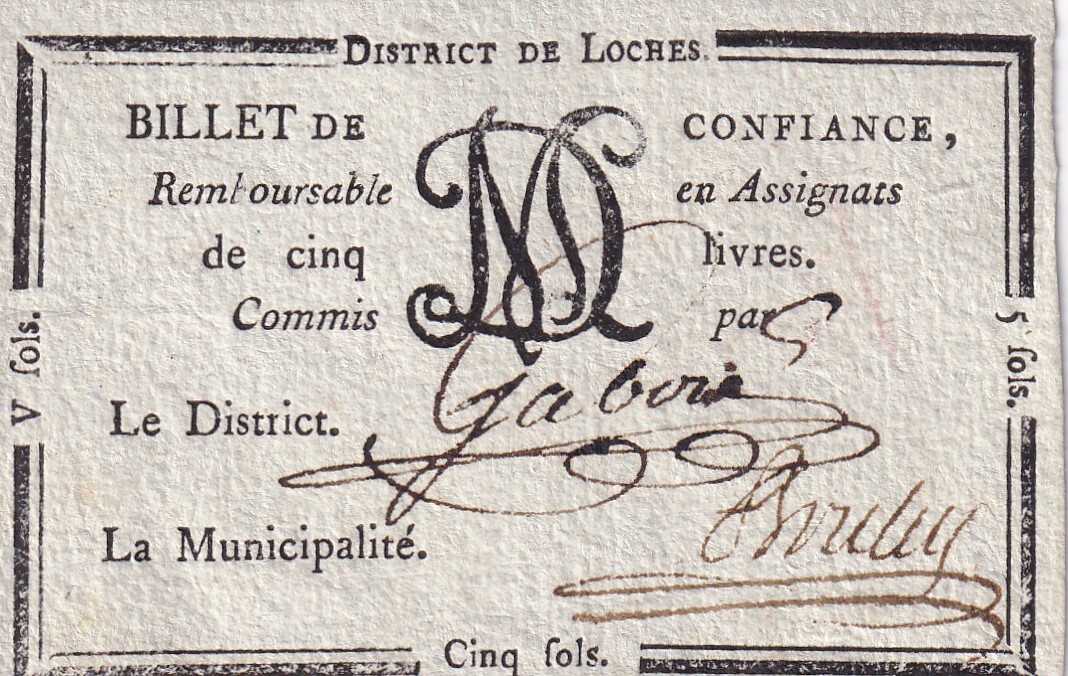 DISTRICT DE LOCHES.
BILLET DE CONFIANCE,
Remboursable en Assignats
de cinq livres.
Commis par
V ſols.
5 ſols.
Le District.
La Municipalité.
Cinq ſols.